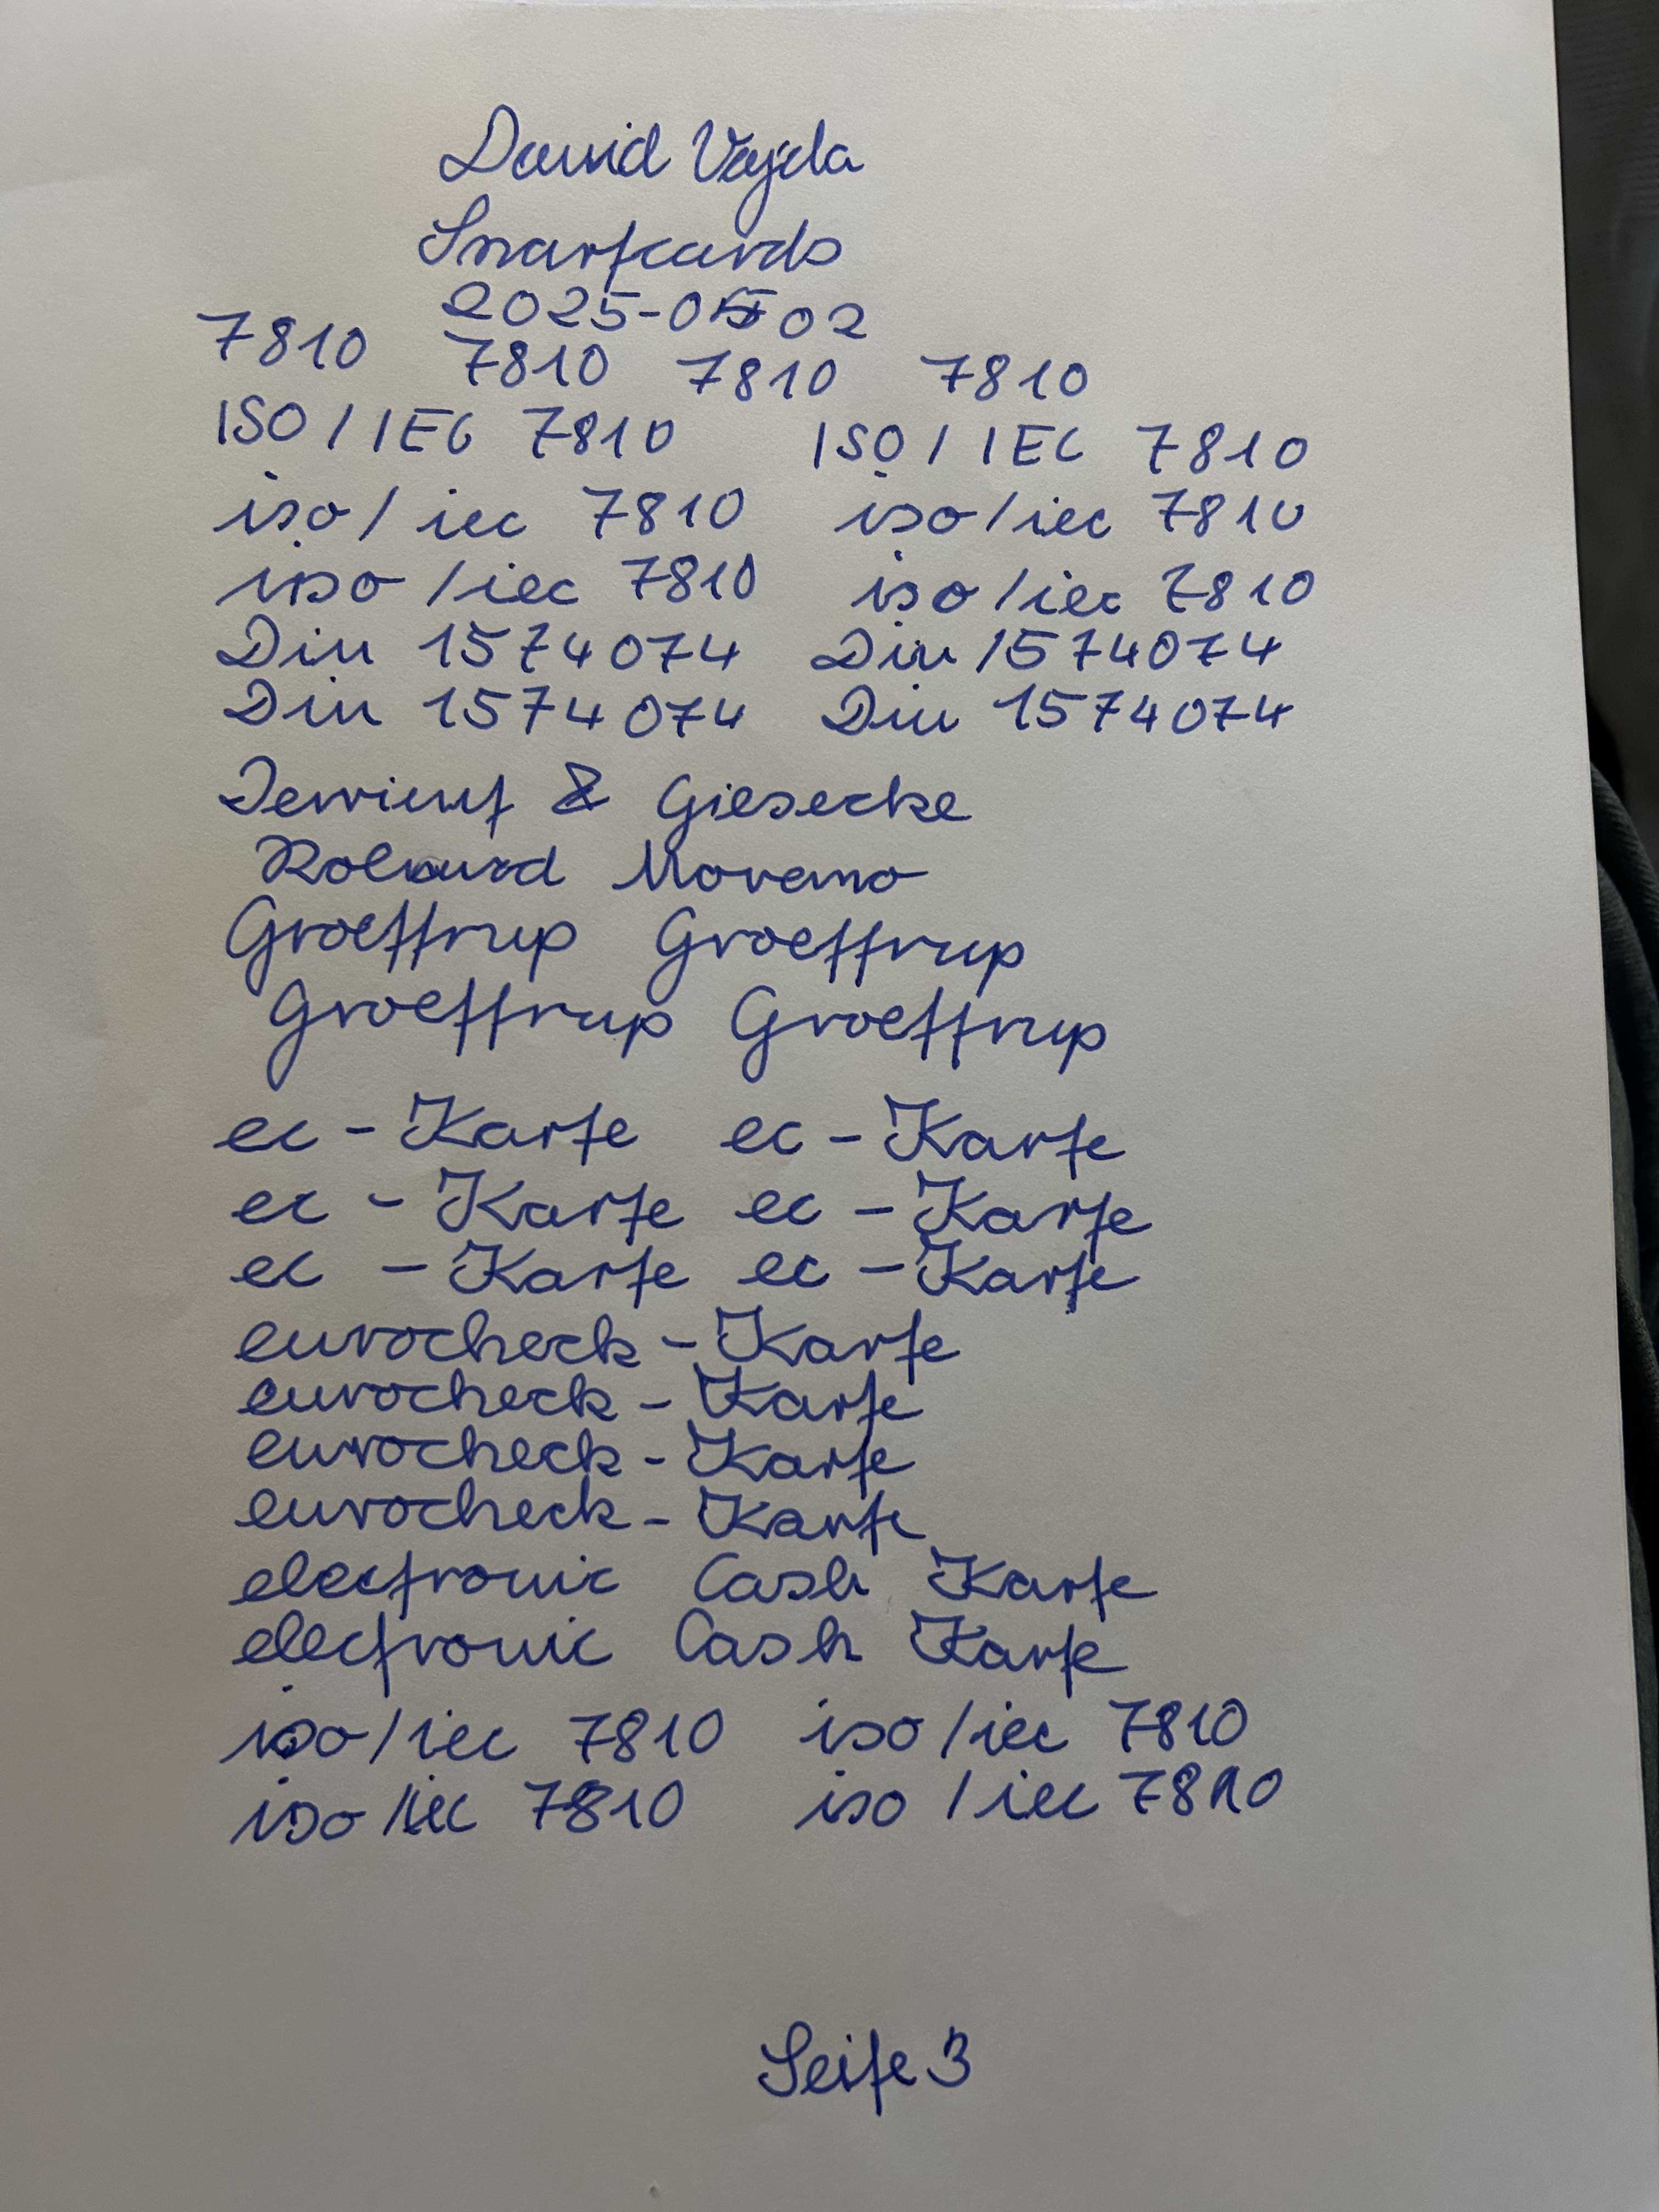 David Vajda
Smartcards
2025-05-02
7810 7810 7810 7810
ISO / IEC 7810 ISO / IEC 7810
iso / iec 7810 iso / iec 7810
iso / iec 7810 iso / iec 7810
Din 1574074 Din 1574074
Din 1574074 Din 1574074
& Giesecke
Roland Moreno
Groettrup Groettrup
Groettrup Groettrup
ec - Karte ec - Karte
ec - Karte ec - Karte
ec - Karte ec - Karte
eurocheck - Karte
eurocheck - Karte
eurocheck - Karte
eurocheck - Karte
electronic Cash Karte
electronic Cash Karte
iso / iec 7810 iso / iec 7810
iso / iec 7810 iso / iec 7810
Seite 3